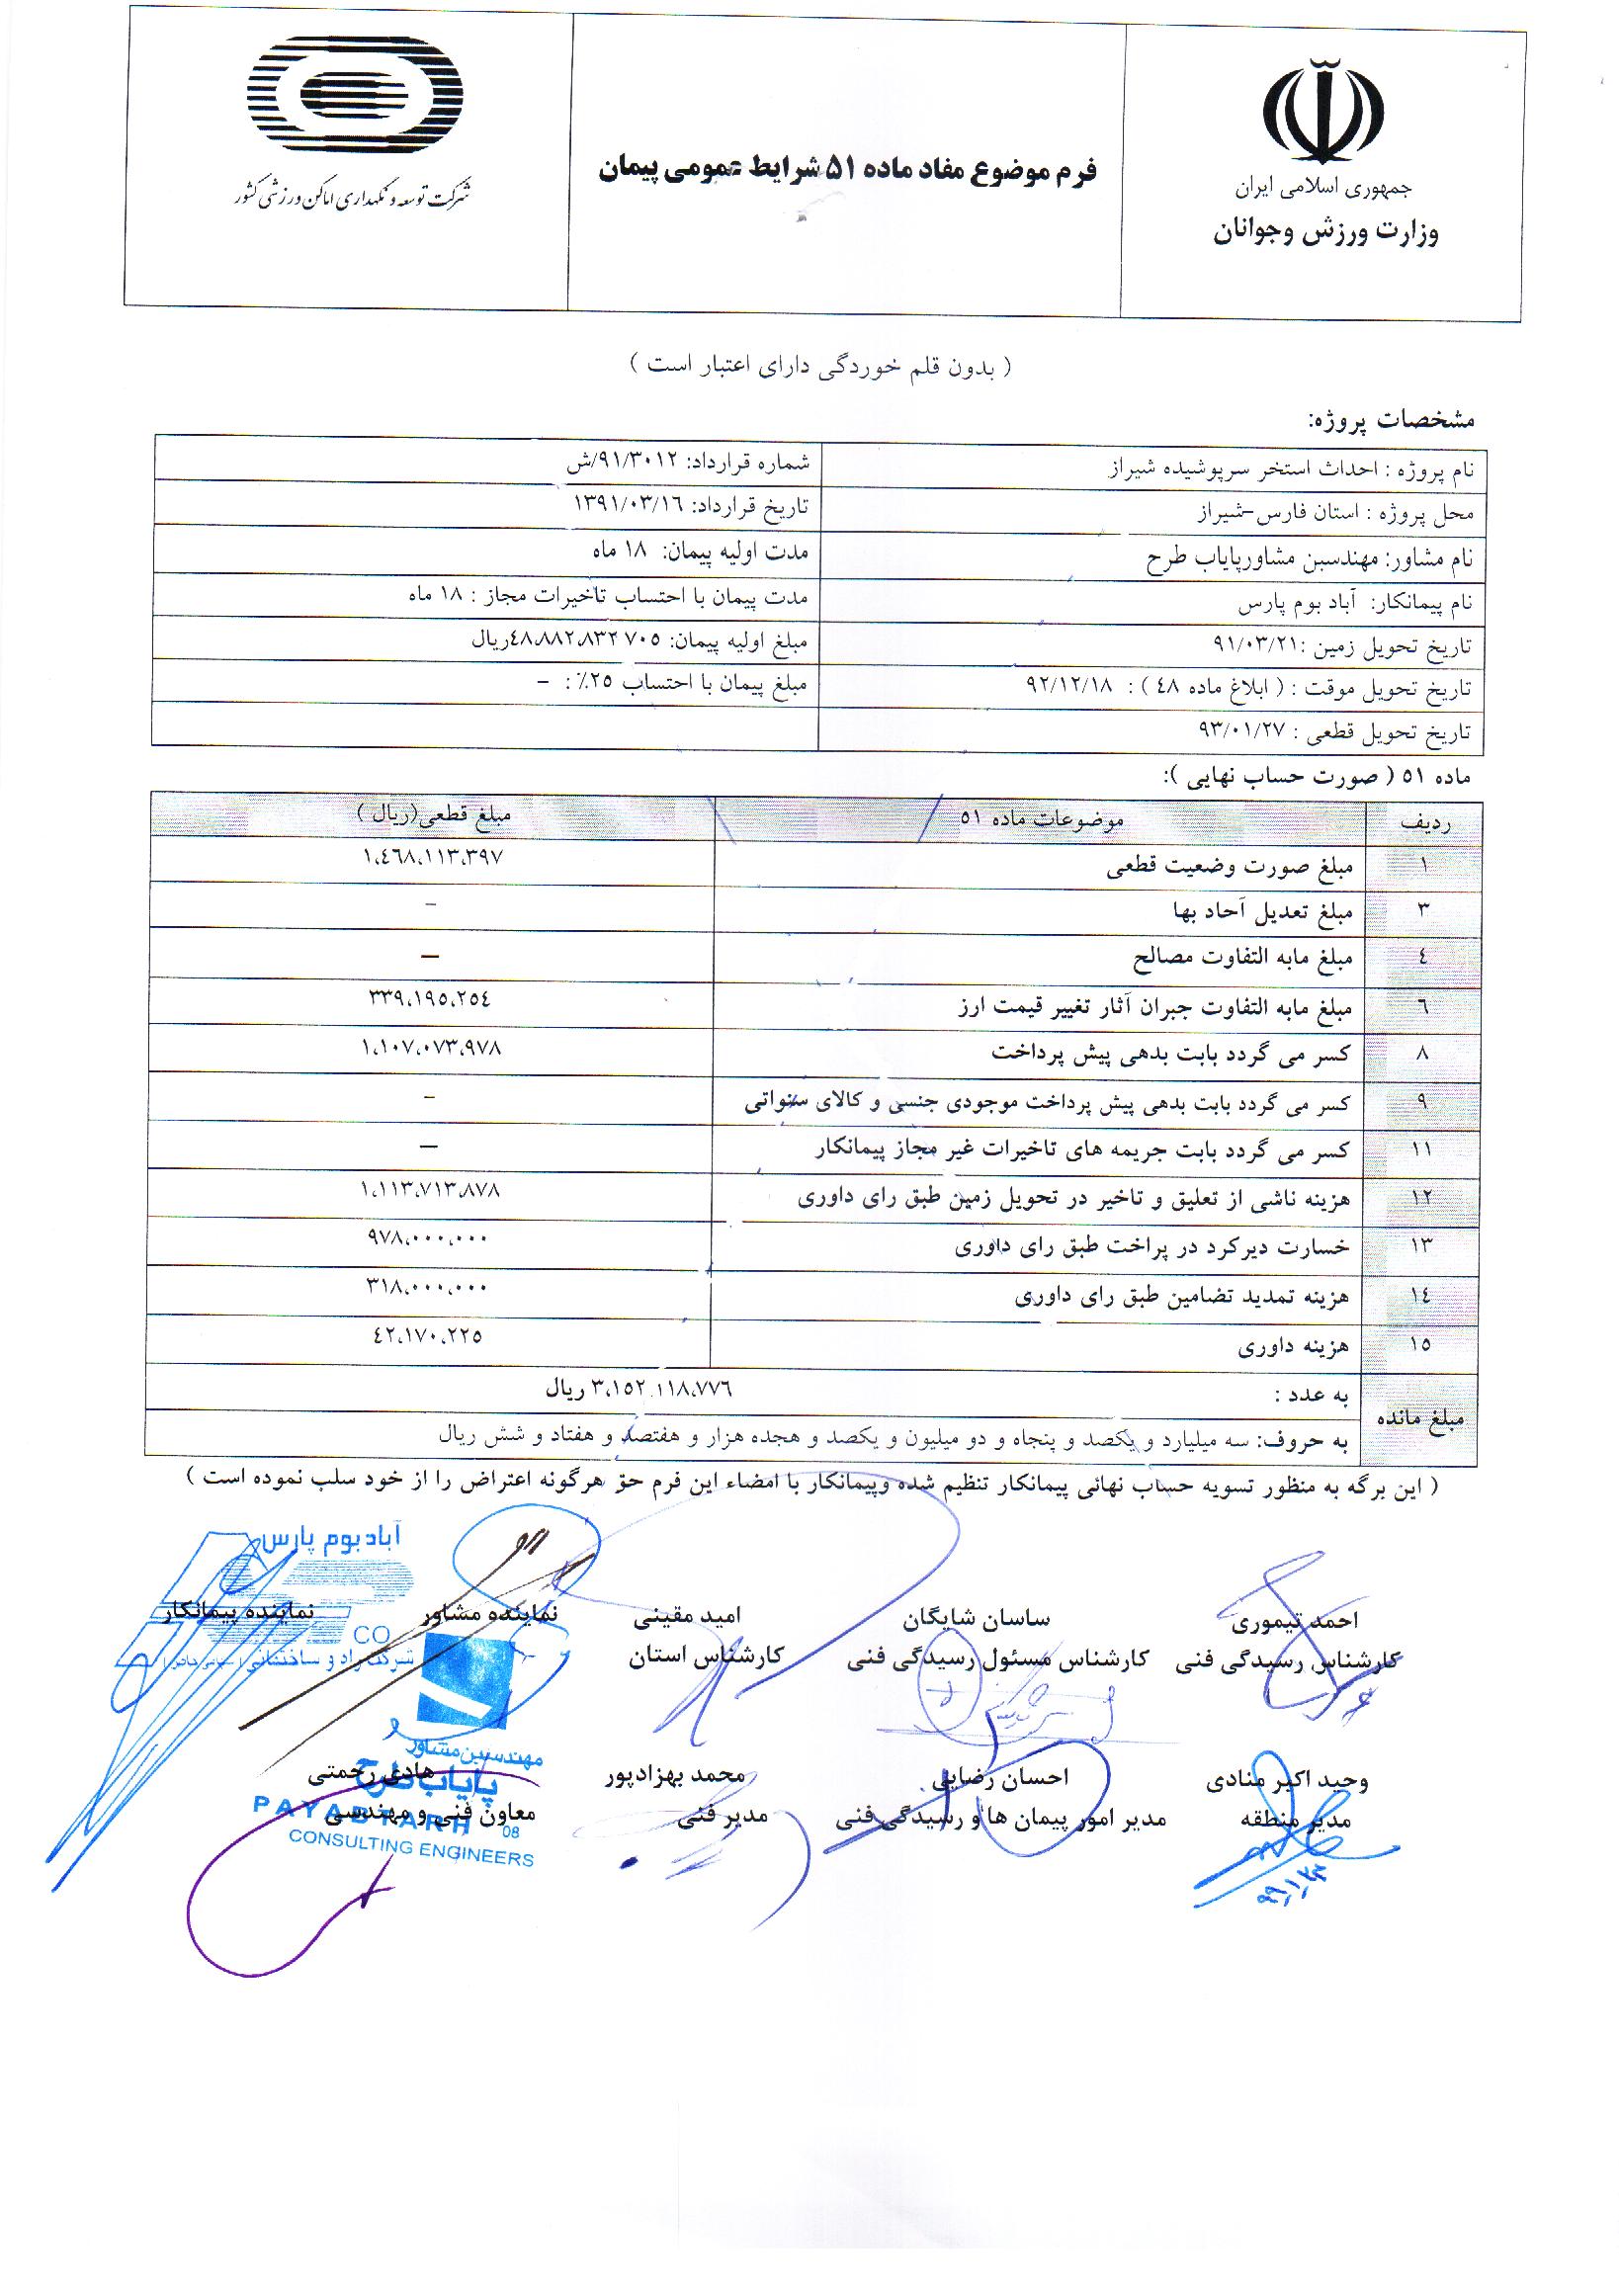 جمهوری اسلامی ایران
وزارت ورزش وجوانان
فرم موضوع مفاد ماده ۵۱ شرایط عمومی پیمان
شرکت توسعه و نگهداری اماکن ورزشی کشور
( بدون قلم خوردگی دارای اعتبار است )
مشخصات پروژه:
نام پروژه : احداث استخر سرپوشیده شیراز
شماره قرارداد: ۹۱/۳۰۱۲/ش
محل پروژه : استان فارس-شیراز
تاریخ قرارداد: ۱۳۹۱/۰۳/۱۶
نام مشاور: مهندسین مشاورپایاب طرح
مدت اولیه پیمان: ۱۸ ماه
نام پیمانکار: آباد بوم پارس
مدت پیمان با احتساب تاخیرات مجاز : ۱۸ ماه
تاریخ تحویل زمین :۹۱/۰۳/۲۱
مبلغ اولیه پیمان: ۴۸،۸۸۲،۸۳۲ ۷۰۵ریال
تاریخ تحویل موقت : ( ابلاغ ماده ۴۸ ) : ۹۲/۱۲/۱۸
مبلغ پیمان با احتساب ۲۵٪ : –
تاریخ تحویل قطعی : ۹۳/۰۱/۲۷
ماده ۵۱ ( صورت حساب نهایی ):
ردیف موضوعات ماده ۵۱ مبلغ قطعی(ریال )
۱ مبلغ صورت وضعیت قطعی ۱،۴۶۸،۱۱۳،۳۹۷
۳ مبلغ تعدیل آحاد بها –
۴ مبلغ مابه التفاوت مصالح –
۶ مبلغ مابه التفاوت جبران آثار تغییر قیمت ارز ۳۳۹،۱۹۵،۲۵۴
۸ کسر می گردد بابت بدهی پیش پرداخت ۱،۱۰۷،۰۷۳،۹۷۸
۹ کسر می گردد بابت بدهی پیش پرداخت موجودی جنسی و کالای سنواتی –
۱۱ کسر می گردد بابت جریمه های تاخیرات غیر مجاز پیمانکار –
۱۲ هزینه ناشی از تعلیق و تاخیر در تحویل زمین طبق رای داوری ۱،۱۱۳،۷۱۳،۸۷۸
۱۳ خسارت دیرکرد در پراخت طبق رای داوری ۹۷۸،۰۰۰،۰۰۰
۱۴ هزینه تمدید تضامین طبق رای داوری ۳۱۸،۰۰۰،۰۰۰
۱۵ هزینه داوری ۴۲،۱۷۰،۲۲۵
مبلغ مانده
به عدد : ۳،۱۵۲،۱۱۸،۷۷۶ ریال
به حروف: سه میلیارد و یکصد و پنجاه و دو میلیون و یکصد و هجده هزار و هفتصد و هفتاد و شش ریال
( این برگه به منظور تسویه حساب نهائی پیمانکار تنظیم شده وپیمانکار با امضاء این فرم حق هرگونه اعتراض را از خود سلب نموده است )
احمد تیموری
کارشناس رسیدگی فنی
ساسان شایگان
کارشناس مسئول رسیدگی فنی
امید مقینی
کارشناس استان
نماینده مشاور
نماینده پیمانکار
آباد بوم پارس
CO
وحید اکبر منادی
مدیر منطقه
احسان رضایی
مدیر امور پیمان ها و رسیدگی فنی
محمد بهزادپور
مدیر فنی
هادی رحمتی
معاون فنی و مهندسی
مهندسین مشاور
پایاب طرح
PAYAB TARH
08
CONSULTING ENGINEERS